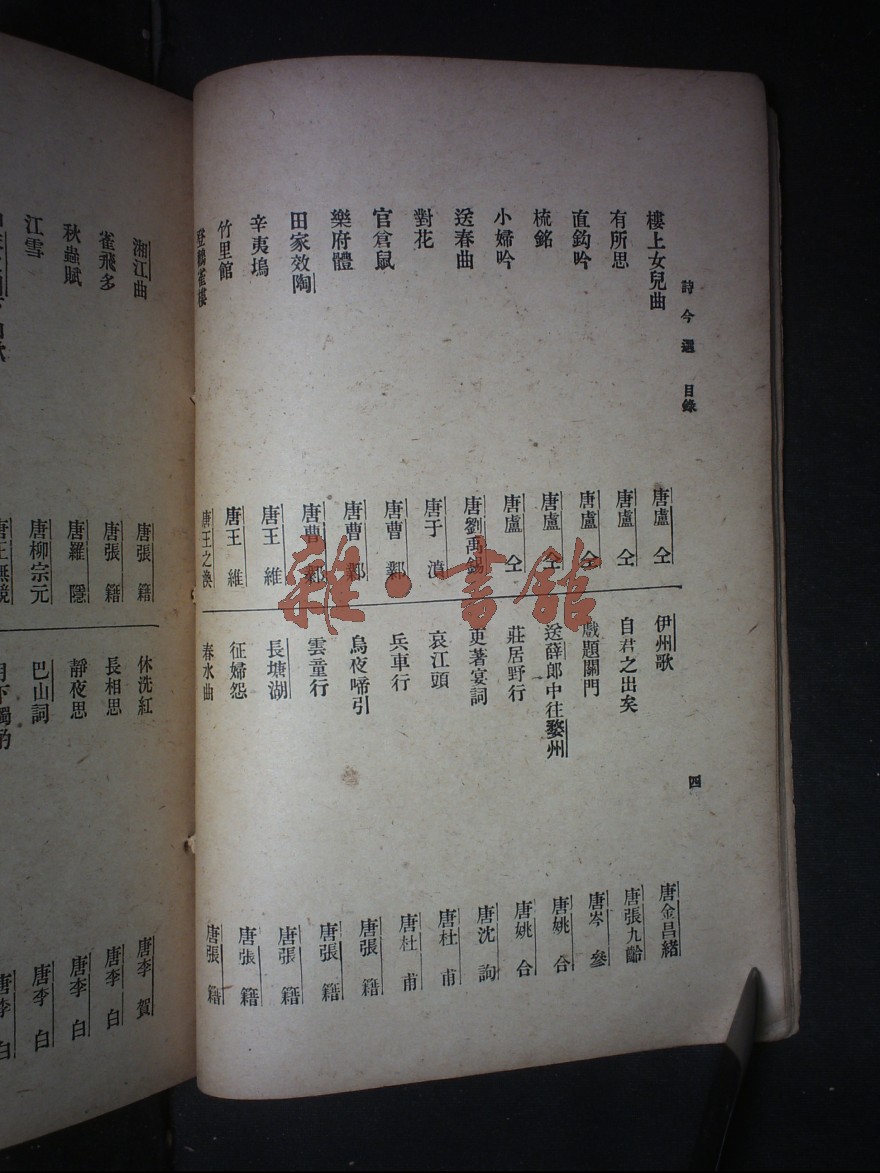 詩今選 目錄
四
樓上女兒曲 唐盧仝
有所思 唐盧仝
直鈎吟 唐盧仝
梳銘 唐盧仝
小婦吟 唐盧仝
送春曲 唐劉禹錫
對花 唐于濆
官倉鼠 唐曹鄴
樂府體 唐曹鄴
田家效陶 唐曹鄴
辛夷塢 唐王維
竹里館 唐王維
登鸛雀樓 唐王之渙
伊州歌 唐金昌緒
自君之出矣 唐張九齡
戲題關門 唐岑參
送薛郎中往婺州 唐姚合
莊居野行 唐姚合
更著宴詞 唐沈詢
哀江頭 唐杜甫
兵車行 唐杜甫
烏夜啼引 唐張籍
雲童行 唐張籍
長塘湖 唐張籍
征婦怨 唐張籍
春水曲 唐張籍
湘江曲 唐張籍
雀飛多 唐張籍
秋蟲賦 唐羅隱
江雪 唐柳宗元
唐王無競
休洗紅 唐李賀
長相思 唐李白
靜夜思 唐李白
巴山詞 唐李白
月下獨酌 唐李白
雜·書館